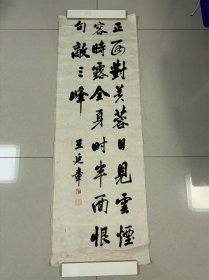 正面對芙蓉日見雲煙
容時露全身时半面恨
向敵三峰
王延章